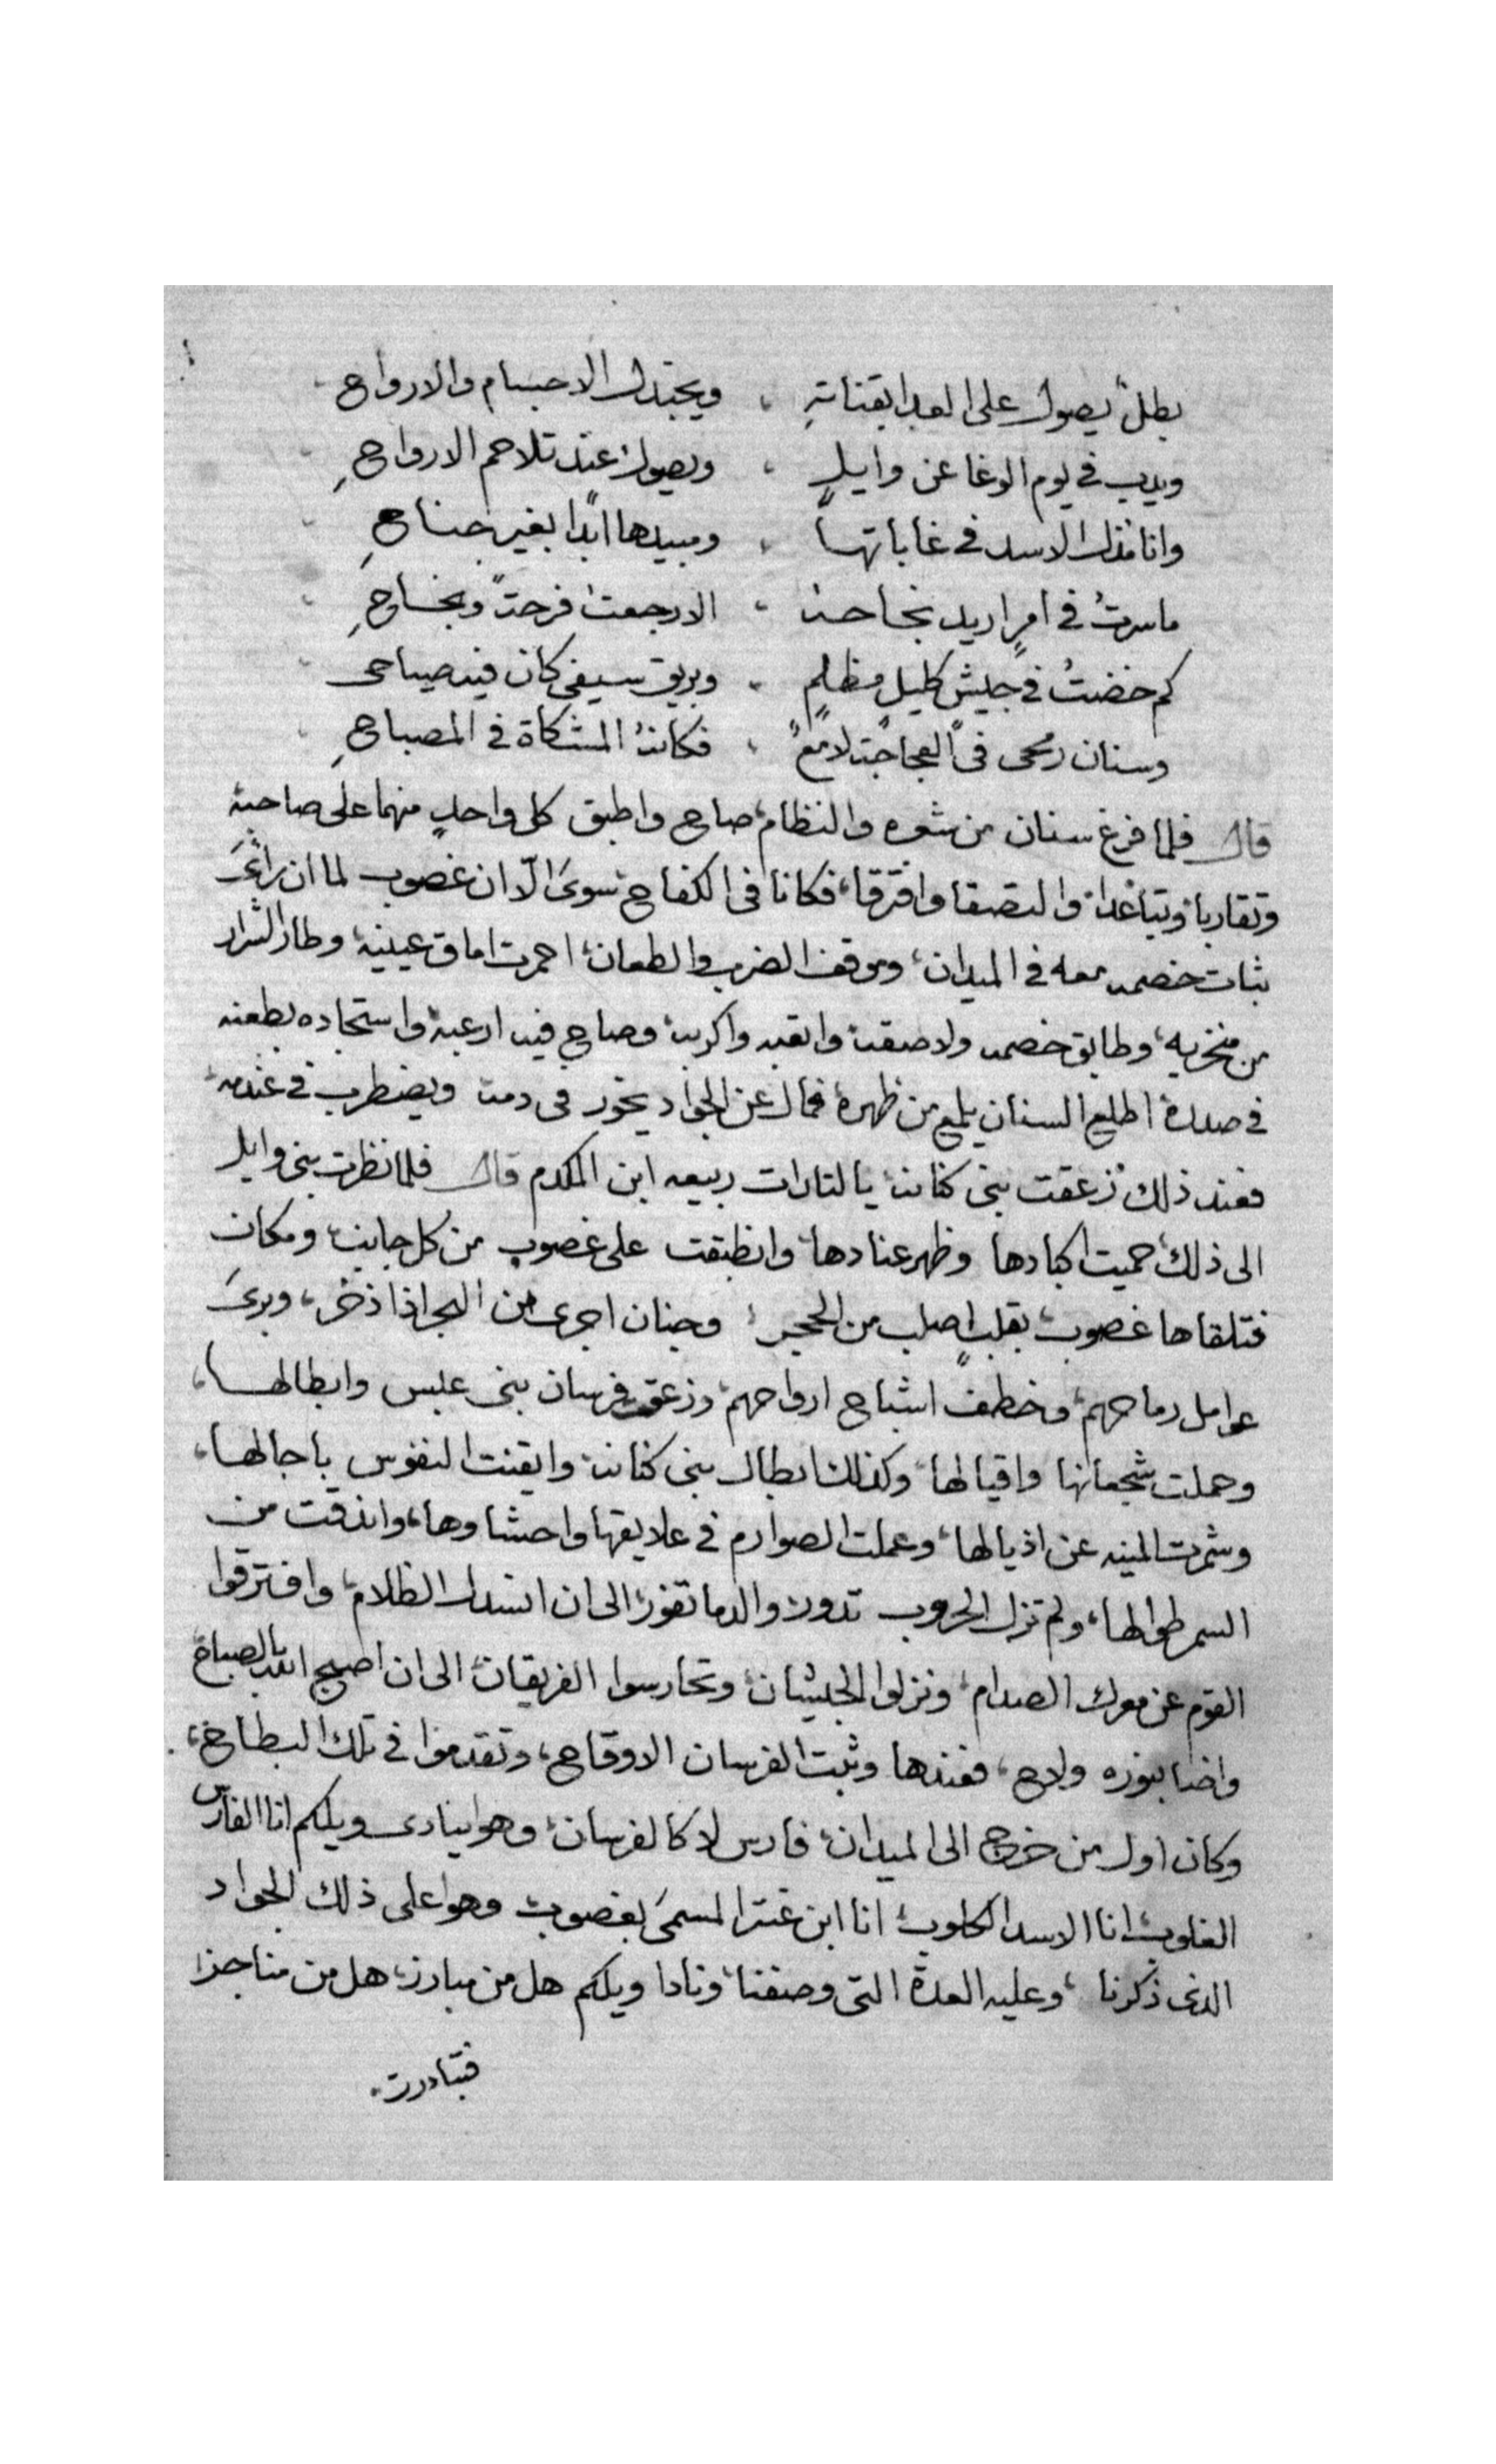 بطل يصول على العدا بقناتهِ ، ويجندل الاجسام والارواح
ويذب في يوم الوغا عن وايلٍ ، ويصول عند تلاحم الارواحِ
وانا مذل الاسد في غاباتها ، ومبيدها ابدًا بغير جناحِ
ما سرتُ في امرٍ اريد نجاحه ، الا رجعت فرحةً ونجاحِ
كم خضتُ في جيشٍ كليلٍ مظلمٍ ، وبريق سيفي كان فيه صياحى
وسنان رمحى في العجاجة لامعٌ ، فكانهُ المشكاة في المصباحِ
قال فلما فرغ سنان من شعره والنظام، صاح واطبق كل واحدٍ منهما على صاحبه
وتقاربا وتباعدا، والتصقا وافترقا، فكانا في الكفاح سوىَ الّا ان غصوب لما ان رأىَ
ثبات خصمه معه في الميدان، وموقف الضرب والطعان، احمرت اماق عينيه، وطار الشرار
من منخريه، وطابق خصمه ولاصقه واتعبه واكربه وصاح فيه ارعبه واستجاده بطعنه
في صدره اطلع السنان يلمع من ظهره، فمال عن الجواد يخور في دمه ويضطرب في عندمه
فعند ذلك زعقت بنى كنانه يالتارات ربيعه ابن المكدم قال فلما نظرت بنى وايل
الى ذلك حميت اكبادها وظهر عنادها، وانطبقت على غصوب من كل جانب ومكان
فتلقاها غصوب بقلبٍ اصلب من الحجر، وجنان اجرى من البحر اذا ذخر، وبرىَ
عوامل رماحهم، وخطف اشباح ارواحهم، وزعق فرسان بنى عبس وابطالها،
وحملت شجعانها واقيالها، وكذلك ابطال بنى كنانه وايقنت النفوس باجالها،
وشمرت المنيه عن اذيالها، وعملت الصوارم في علايقها واحشاوها، واندقت من
السمر طوالها، ولم تزل الحروب تدور، والدما تفور، الى ان انسدل الظلام، وافترقوا
القوم عن معرك الصدام، ونزلوا الجيشان، وتحارسوا الفريقان، الى ان اصبح الله بالصباح
واضا بنوره ولاح، فعندها وثبت الفرسان الاوقاح، وتقدموا في تلك البطاح،
وكان اول من خرج الى الميدان، فارس لا كالفرسان، وهو ينادى ويلكم انا الفارس
الغلوب، انا الاسد الكلوب، انا ابن عنتر المسمىَ بغصوب وهو على ذلك الجواد
الذى ذكرنا، وعليه العدة التى وصفنا، ونادا ويلكم هل من مبارز، هل من مناجز
فتبادرت